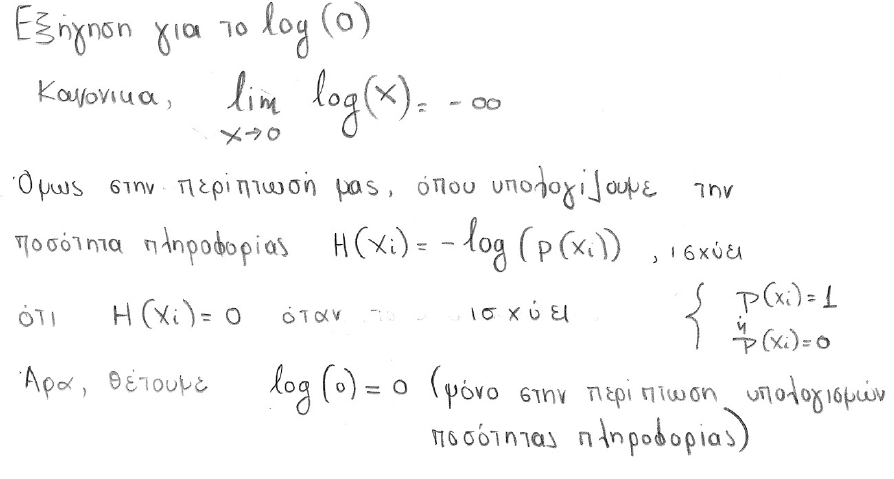 Εξήγηση για το log(0)
Κανονικα, lim log(x) = -∞
x→0
Όμως στην περίπτωσή μας, όπου υπολογίζουμε την
ποσότητα πληροφορίας H(xi) = -log(p(xi)), ισχύει
ότι H(xi) = 0 όταν ισχύει { p(xi)=1
ή
p(xi)=0
Άρα, θέτουμε log(0) = 0 (μόνο στην περίπτωση υπολογισμών
ποσότητας πληροφορίας)